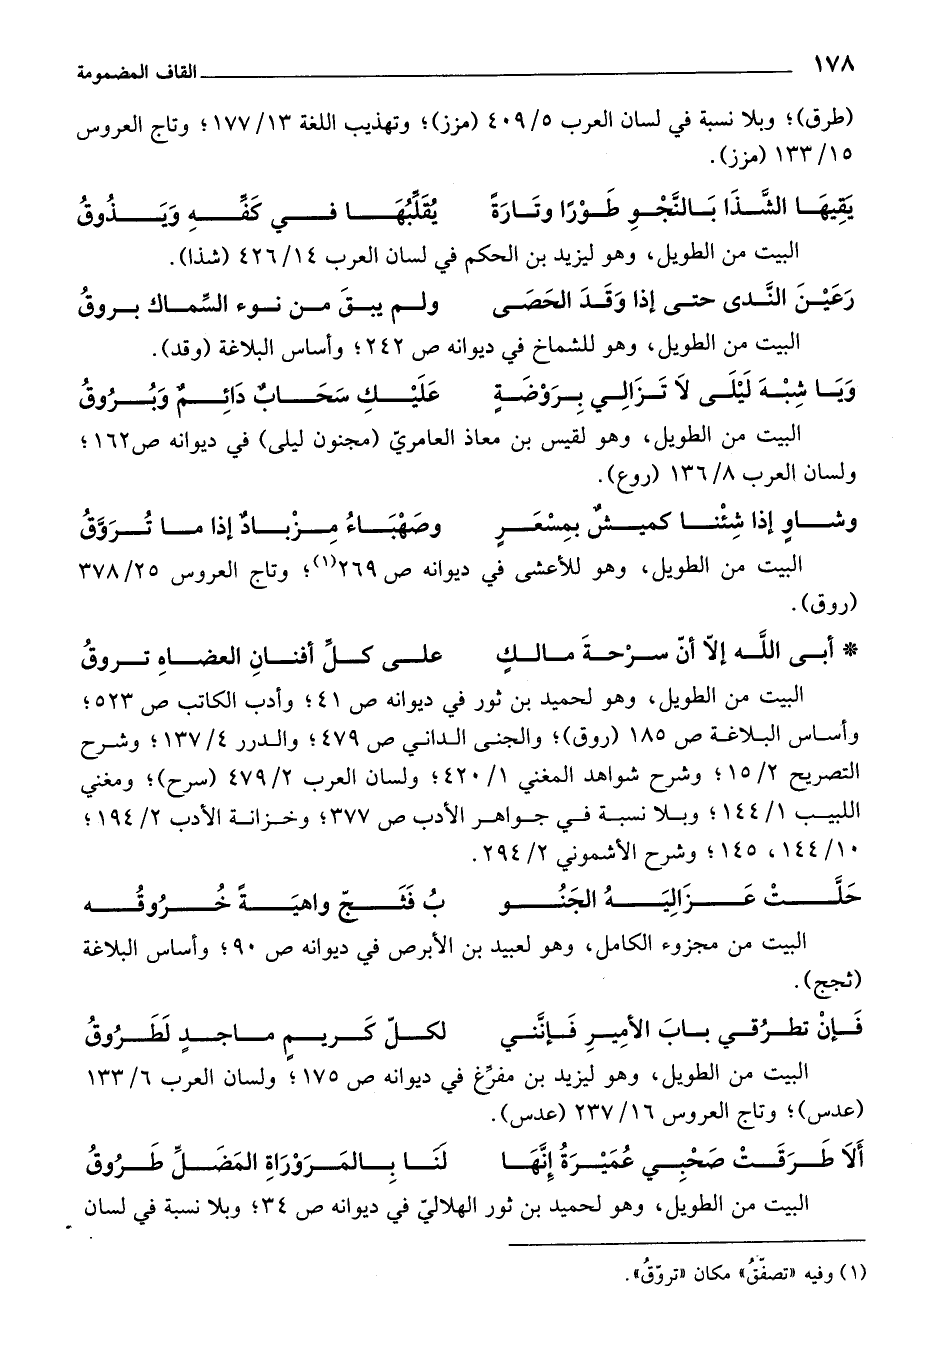 ١٧٨ القاف المضمومة
(طرق)؛ وبلا نسبة في لسان العرب ٥/ ٤٠٩ (مزز)؛ وتهذيب اللغة ١٣/ ١٧٧؛ وتاج العروس
١٥/ ١٣٣ (مزز).
يَقِيهَا الشَّذَا بَالنَّجْوِ طَوْرًا وتَارَةً يُقَلِّبُهَا في كَفِّهِ وَيَذُوقُ
البيت من الطويل، وهو ليزيد بن الحكم في لسان العرب ١٤/ ٤٢٦ (شذا).
رَعَيْنَ النَّدى حتى إذا وَقَدَ الحَصَى ولم يبقَ من نوء السِّماك بروقُ
البيت من الطويل، وهو للشماخ في ديوانه ص ٢٤٢؛ وأساس البلاغة (وقد).
وَيَا شِبْهَ لَيْلَى لاَ تَزَالِي بِرَوْضَةٍ عَلَيْكِ سَحَابٌ دَائِمٌ وَبُرُوقُ
البيت من الطويل، وهو لقيس بن معاذ العامريّ (مجنون ليلى) في ديوانه ص١٦٢؛
ولسان العرب ٨/ ١٣٦ (روع).
وشاوٍ إذا شِئْنا كميشٌ بِمِسْعَرٍ وصَهْبَاءُ مِزْبادٌ إذا ما تُرَوَّقُ
البيت من الطويل، وهو للأعشى في ديوانه ص ٢٦٩(١)؛ وتاج العروس ٢٥/ ٣٧٨
(روق).
* أبى اللَّه إلاّ أنّ سرْحةَ مالكٍ على كلِّ أفنانِ العضاهِ تروقُ
البيت من الطويل، وهو لحميد بن ثور في ديوانه ص ٤١؛ وأدب الكاتب ص ٥٢٣؛
وأساس البلاغة ص ١٨٥ (روق)؛ والجنى الداني ص ٤٧٩؛ والدرر ٤/ ١٣٧؛ وشرح
التصريح ٢/ ١٥؛ وشرح شواهد المغني ١/ ٤٢٠؛ ولسان العرب ٢/ ٤٧٩ (سرح)؛ ومغني
اللبيب ١/ ١٤٤؛ وبلا نسبة في جواهر الأدب ص ٣٧٧؛ وخزانة الأدب ٢/ ١٩٤؛
١٠/ ١٤٤، ١٤٥؛ وشرح الأشموني ٢/ ٢٩٤.
حَلَّتْ عَزَالِيَهُ الجَنُو بُ فَثَجّ واهيَةً خُرُوقُه
البيت من مجزوء الكامل، وهو لعبيد بن الأبرص في ديوانه ص ٩٠؛ وأساس البلاغة
(ثجج).
فَإنْ تطرُقي بابَ الأمِيرِ فَإنَّني لكلّ كَريمٍ ماجدٍ لَطَرُوقُ
البيت من الطويل، وهو ليزيد بن مفرِّغ في ديوانه ص ١٧٥؛ ولسان العرب ٦/ ١٣٣
(عدس)؛ وتاج العروس ١٦/ ٢٣٧ (عدس).
أَلاَ طَرَقَتْ صَحْبِي عُمَيْرَةُ إنَّهَا لَنَا بِالمَرَوْرَاةِ المَضَلِّ طَرُوقُ
البيت من الطويل، وهو لحميد بن ثور الهلاليّ في ديوانه ص ٣٤؛ وبلا نسبة في لسان
(١) وفيه «تصفّقُ» مكان «تروّقُ».